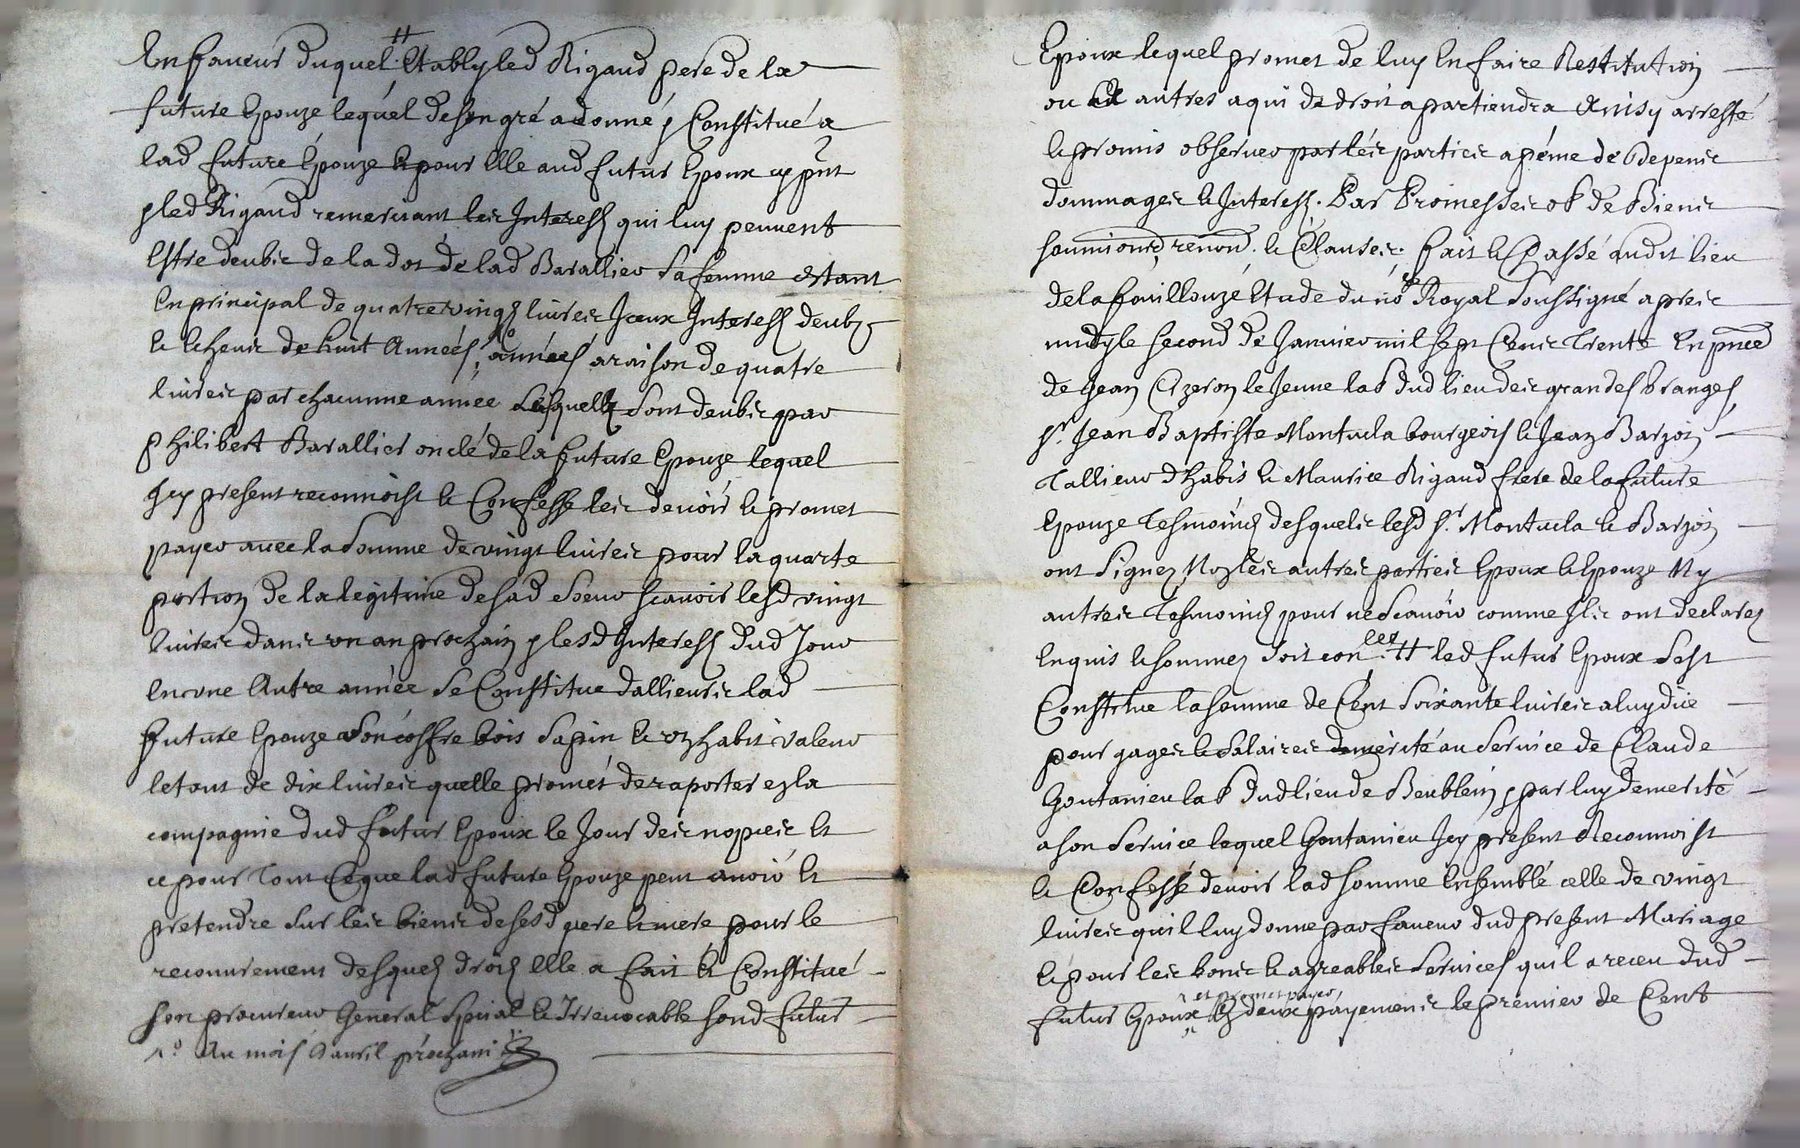 En faveur duquel # Etably led Rigaud pere de la
future Epouze lequel de son gré a donné & Constitué a
lad future Epouze & pour Elle aud futur Epoux cy pnt
& led Rigaud remerciant les Interest qui luy peuvent
Estre deubs de la dot de lad Barallier sa femme estant
En principal de quatre vingt livres Iceux Interest deubz
& Echeus de huit Années 1° années a raison de quatre
livres par chacunne année Lesquels sont deubs par
philibert Barallier oncle de la future Epouze lequel
Icy present reconnoist & Confesse les devoir & promet
payer avec la somme de vingt livres pour la quarte
portion de la legitime de sad soeur scavoir lesd vingt
livres dans un an prochain & lesd Interest dud Jour
en une Autre année se Constitue dallieurs lad
future Epouze son coffre bois sapin & un habit valeur
le tout de dix livres quelle promet de raporter en la
compagnie dud futur Epoux le Jour des nopces Et
ce pour tout Ce que lad future Epouze peut avoir Et
pretendre sur les biens de sesd pere & mere pour le
recouvrement desquels droits elle a fait & Constitué
son procureur General Spécial & Irrevocable sond futur
1° Au mois d'avril prochain
Epoux lequel promet de luy En faire Restitution
ou a autres a qui de droit apartiendra Ainsy arresté
& promis observer par les parties a peine de depens
dommages & Interest. Par Promesses ob de Biens
soumions renon. & Clauses. fait & Passé audit lieu
de la fouillouze Etude du no Royal soussigné apres
midy le second de Janvier mil sept Cens Trente En pnce
de Jean Azeron le Jeune lab dud lieu des grandes branges
sr. Jean Baptiste Montucla bourgeois & Jean Barjon
Tallieur dhabis & Maurice Rigaud frere de la future
Epouze Tesmoins desquels lesd sr. Montucla & Barjon
ont signez Non les autres parties Epoux & Epouze Ny
autres Tesmoins pour ne scavoir comme Ils ont declarez
Enquis & sommez soit con.lez # led futur Epoux s'est
Constitue la somme de Cent soixante livres a luy düe
pour gages & salaires demérité au service de Claude
Goutanieu lab dud lieu de Beublein & par luy demerité
a son service lequel Goutanieu Icy present Reconnoist
& Confessé devoir lad somme Ensemble celle de vingt
livres quil luy donne par faveur dud present Mariage
& pour les bons & agreables services quil a receu dud
et promet payer
futur Epoux En deux payemens le premier de Cent